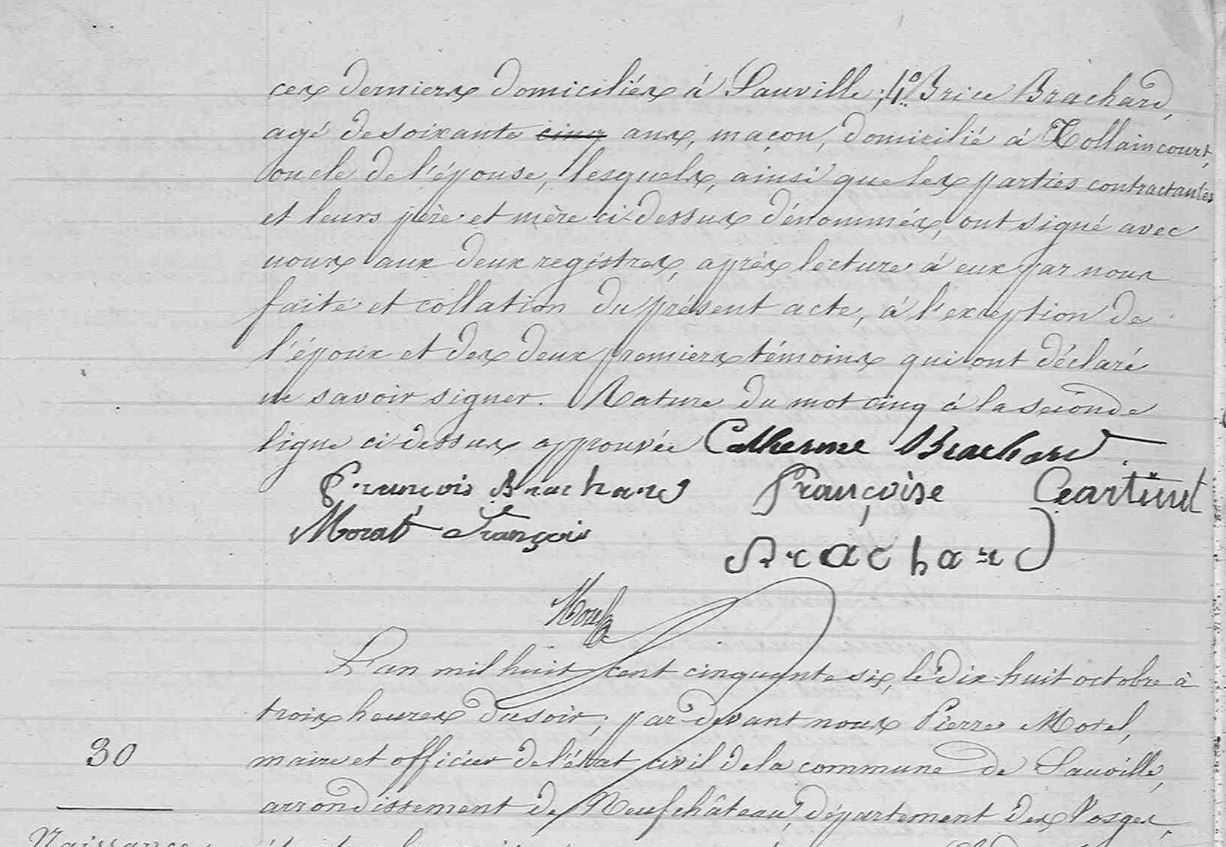 ces derniers domiciliés à Sauville; 4° Brice Brachard,
agé de soixante cinq ans, maçon, domicilié à Tollaincourt,
oncle de l'épouse, lesquels, ainsi que les parties contractantes
et leurs père et mère ci-dessus dénommés, ont signé avec
nous aux deux registres, après lecture à eux par nous
faite et collation du présent acte, à l'exception de
l'époux et des deux premiers témoins qui ont déclaré
ne savoir signer. Rature du mot cinq à la seconde
ligne ci-dessus approuvée Catherine Brachard.
François Brachard Françoise
Morat François
Brachard
L'an mil huit cent cinquante six, le dix huit octobre à
trois heures du soir, par devant nous Pierre Morel,
maire et officier de l'état civil de la commune de Sauville,
30
arrondissement de Neufchâteau, département des Vosges,
Naissance